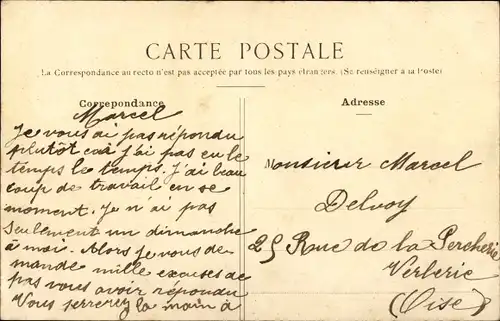 CARTE POSTALE
La Correspondance au recto n'est pas acceptée par tous les pays étrangers. (Se renseigner à la Poste)
Correpondance
Marcel
Je vous ai pas répondu
plutôt car j'ai pas eu le
temps le temps. J'ai beau
coup de travail en se
moment. Je n'ai pas
seulement un dimanche
à moi. Alors je vous de
mande mille excuses de
pas vous avoir répondu
Vous serrerez la main à
Adresse
Monsieur Marcel
Delvoy
25 Rue de la Percherie
Verberie
(Oise)